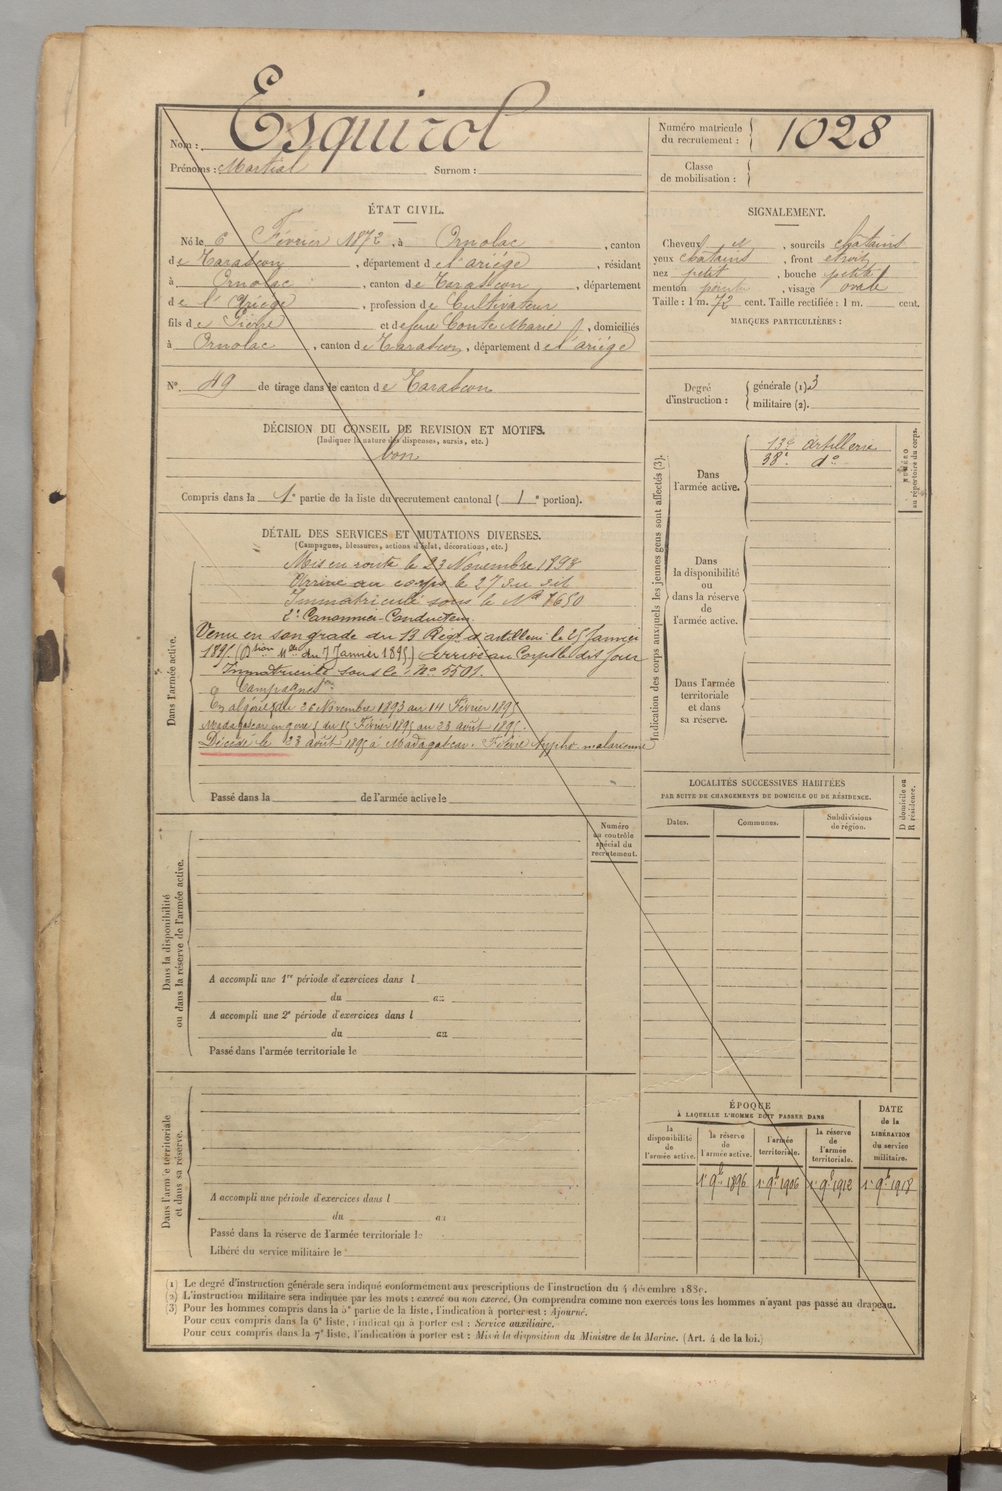 Nom : Esquirol
Prénoms : Martial Surnom :
Numéro matricule
du recrutement : 1028
Classe
de mobilisation :
ÉTAT CIVIL.
Né le 6 Février 1872, à Ornolac, canton
de Tarascon, département de l'ariége, résidant
à Ornolac, canton de Tarascon, département
de l'Ariège, profession de Cultivateur
fils de Pierre et de feue Conte Marie, domiciliés
à Ornolac, canton de Tarascon, département de l'ariége
N° 49 de tirage dans le canton de Tarascon
DÉCISION DU CONSEIL DE REVISION ET MOTIFS.
(Indiquer la nature des dispenses, sursis, etc.)
bon
Compris dans la 1e partie de la liste du recrutement cantonal ( 1 e portion).
SIGNALEMENT.
Cheveux et, sourcils châtains
yeux châtains, front étroit
nez petit, bouche petite
menton pointu, visage ovale
Taille : 1 m. 72 cent. Taille rectifiée : 1 m. cent.
MARQUES PARTICULIÈRES :
Degré
d'instruction :
générale (1). 3
militaire (2).
DÉTAIL DES SERVICES ET MUTATIONS DIVERSES.
(Campagnes, blessures, actions d'éclat, décorations, etc.)
Dans l'armée active.
Mis en route le 23 Novembre 1893
Arrivé au corps le 27 du dit
Immatriculé sous le N° 7650
2e Canonnier-Conducteur
Venu en son grade du 13 Régt d'artillerie le 25 Janvier
1895. (Dtion Mlle du 7 Janvier 1895) Arrivé au Corps le dit jour
Immatriculé sous le N° 5501.
Campagnes
En algérie du 26 Novembre 1893 au 14 Février 1895
Madagascar en guerre du 15 Février 1895 au 23 août 1895.
Décédé le 23 août 1895 à Madagascar. Fièvre typho-malarienne
Passé dans la de l'armée active le
Indication des corps auxquels les jeunes gens sont affectés (3).
Dans
l'armée active.
13e artillerie
38e do
NUMÉRO
au répertoire du corps.
Dans
la disponibilité
ou
dans la réserve
de
l'armée active.
Dans l'armée
territoriale
et dans
sa réserve.
LOCALITÉS SUCCESSIVES HABITÉES
PAR SUITE DE CHANGEMENTS DE DOMICILE OU DE RÉSIDENCE.
Dates.
Communes.
Subdivisions
de région.
D domicile ou
R résidence.
Numéro
au contrôle
spécial du
recrutement.
Dans la disponibilité
ou dans la réserve de l'armée active.
A accompli une 1re période d'exercices dans l
du au
A accompli une 2e période d'exercices dans l
du au
Passé dans l'armée territoriale le
Dans l'armée territoriale
et dans sa réserve.
A accompli une période d'exercices dans l
du au
Passé dans la réserve de l'armée territoriale le
Libéré du service militaire le
ÉPOQUE
À LAQUELLE L'HOMME DOIT PASSER DANS
la
disponibilité
de
l'armée active.
la réserve
de
l'armée active.
l'armée
territoriale.
la réserve
de
l'armée
territoriale.
DATE
de la
LIBÉRATION
du service
militaire.
1er 9bre 1896
1er 9bre 1906
1er 9bre 1912
1er 9bre 1918
(1) Le degré d'instruction générale sera indiqué conformément aux prescriptions de l'instruction du 4 décembre 1889.
(2) L'instruction militaire sera indiquée par les mots : exercé ou non exercé. On comprendra comme non exercés tous les hommes n'ayant pas passé au drapeau.
(3) Pour les hommes compris dans la 5e partie de la liste, l'indication à porter est : Ajourné.
Pour ceux compris dans la 6e liste, l'indication à porter est : Service auxiliaire.
Pour ceux compris dans la 7e liste, l'indication à porter est : Mis à la disposition du Ministre de la Marine. (Art. 4 de la loi.)